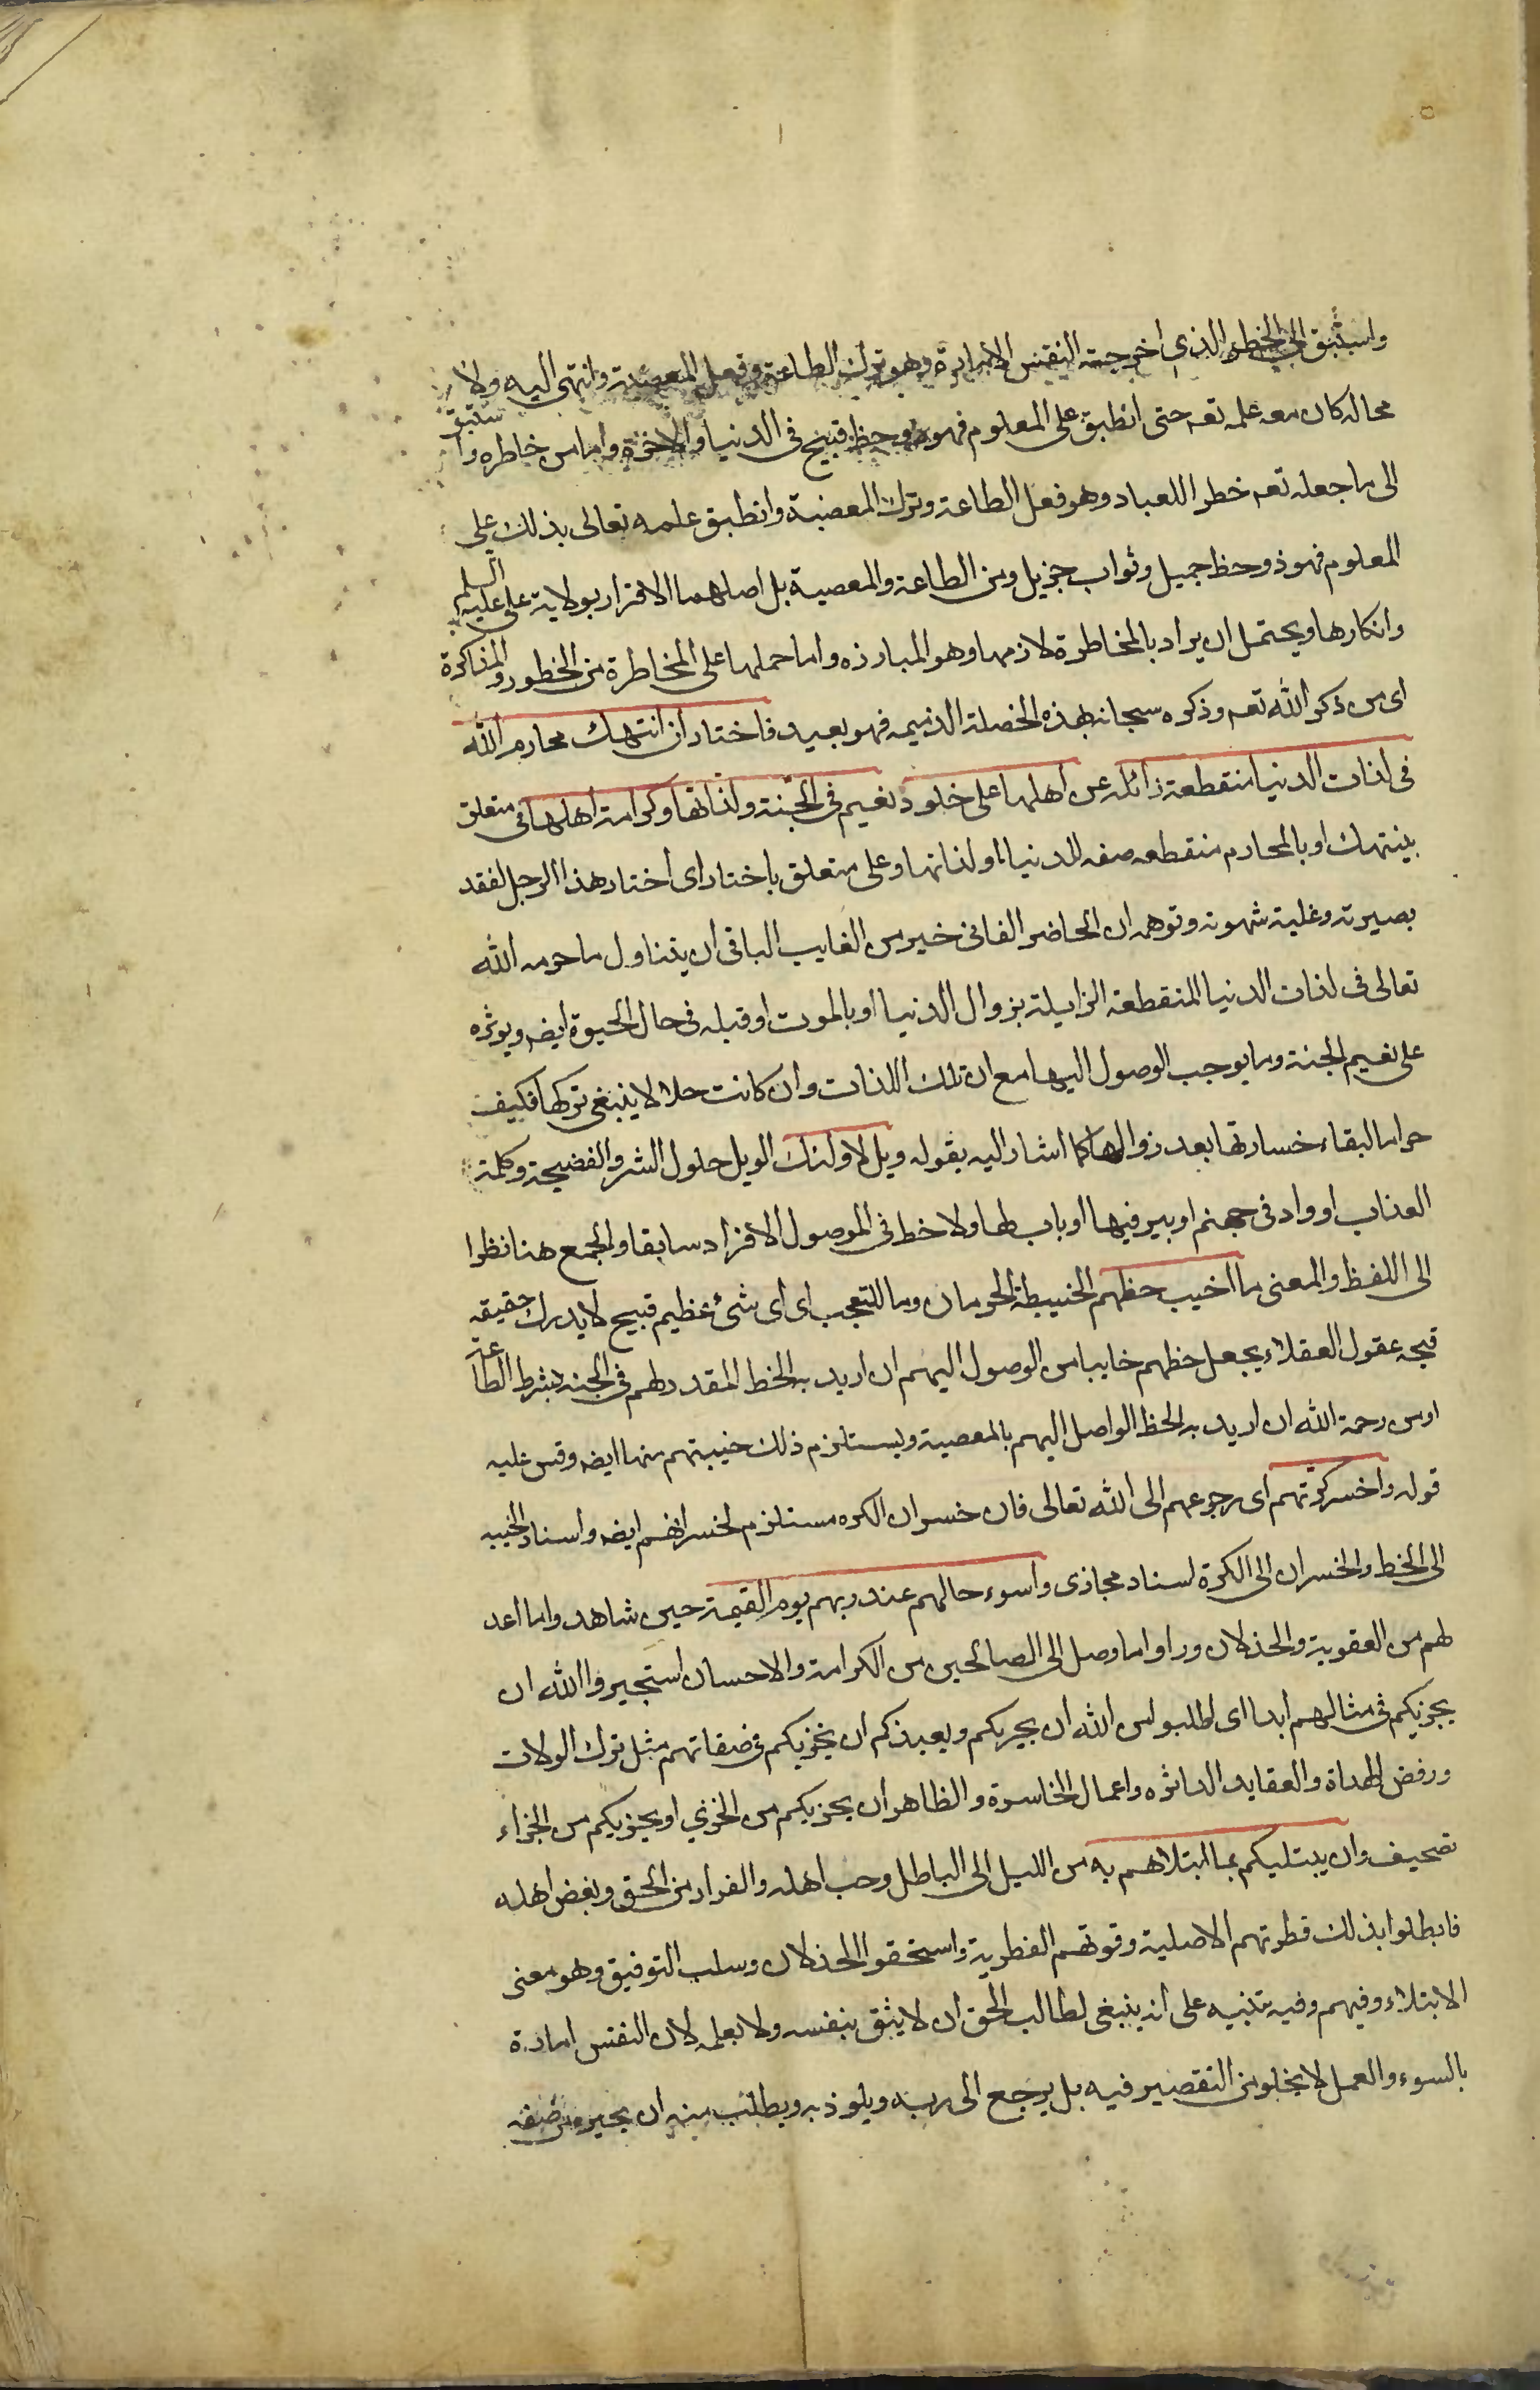 واستبق الى الخطر الذى اخرجته النفس الامارة وهو ترك الطاعة وفعل المعصية وانتهى اليه ولا
محاله كان معه علمه تعه حتى انطبق على المعلوم فهو ذو حظ قبيح فى الدنيا والاخرة واما من خاطره واستبق
الى ما جعله تعه خطرا للعباد وهو فعل الطاعة وترك المعصية وانطبق علمه تعالى بذلك على
المعلوم فهو ذو حظ جميل وثواب جزيل ومن الطاعة والمعصية بل اصلهما الاقرار بولاية على عليه السلم
وانكارها ويحتمل ان يراد بالمخاطرة لازمها وهو المبارزه واما حملها على المخاطرة من الخطور والمذاكرة
اى من ذكر الله تعه وذكره سبحانه بهذه الخصلة الذميمه فهو بعيد فاختار ان انتهك محارم الله
فى لذات الدنيا منقطعة زائلة عن اهلها على خلود نعيم فى الجنة ولذاتها وكرامة اهلها فى متعلق
بينتهك او بالمحارم منقطعه صفه للدنيا او لذاتها وعلى متعلق باختار اى اختار هذا الرجل لفقد
بصيرته وغلبة شهوته وتوهمه ان الحاضر الفانى خير من الغايب الباقى ان يتناول ما حرمه الله
تعالى فى لذات الدنيا المنقطعة الزايلة بزوال الدنيا او بالموت او قبله فى حال الحيوة ايضه ويوثره
على نعيم الجنة وما يوجب الوصول اليها مع ان تلك اللذات وان كانت حلالا ينبغى تركها فكيف
حراما لبقاء خسارتها بعد زوالها كما اشار اليه بقوله ويل لاولئك الويل حلول الشر والفضيحة وكلمة
العذاب او واد فى جهنم او بير فيها او باب لها ولاحظ فى الموصول الافراد سابقا والجمع هنا نظرا
الى اللفظ والمعنى ما اخيب حظهم الخيبة الحرمان وما للتعجب اى اى شئ عظيم قبيح لا يدرك حقيقه
قبحه عقول العقلاء يجعل حظهم خايبا من الوصول اليهم ان اريد به الحظ المقدر لهم فى الجنه بشرط الطاعة
او من رحمة الله ان اريد به الحظ الواصل اليهم بالمعصية ويستلزم ذلك خيبتهم منها ايضه وقس عليه
قوله واخسر كرتهم اى رجوعهم الى الله تعالى فان خسران الكره مستلزم لخسرانهم ايضه واسناد الخيبه
الى الحظ والخسران الى الكرة اسناد مجازى واسوء حالهم عند ربهم يوم القيمة حين شاهدوا ما اعد
لهم من العقوبة والخذلان وراوا ما وصل الى الصالحين من الكرامة والاحسان استجيروا الله ان
يجزيكم فى مثالهم ابدا اى اطلبوا من الله ان يجيركم ويعيذكم ان يخزيكم فى صفاتهم مثل ترك الولات
ورفض الهداة والعقايد الداثره واعمال الخاسرة والظاهر ان يجزيكم من الخزي او يجزيكم من الجزاء
تصحيف وان يبتليكم بما ابتلاهم به من الميل الى الباطل وحب اهله والفرار من الحق وبغض اهله
فابطلوا بذلك فطرتهم الاصلية وقوتهم الفطرية واستحقوا الخذلان وسلب التوفيق وهو معنى
الابتلاء وفيهم وفيه تنبيه على انه ينبغى لطالب الحق ان لا يثق بنفسه ولا بعلمه لان النفس امارة
بالسوء والعمل لا يخلو من التقصير فيه بل يرجع الى ربه ويلوذ به ويطلب منه ان يجيره من صفه